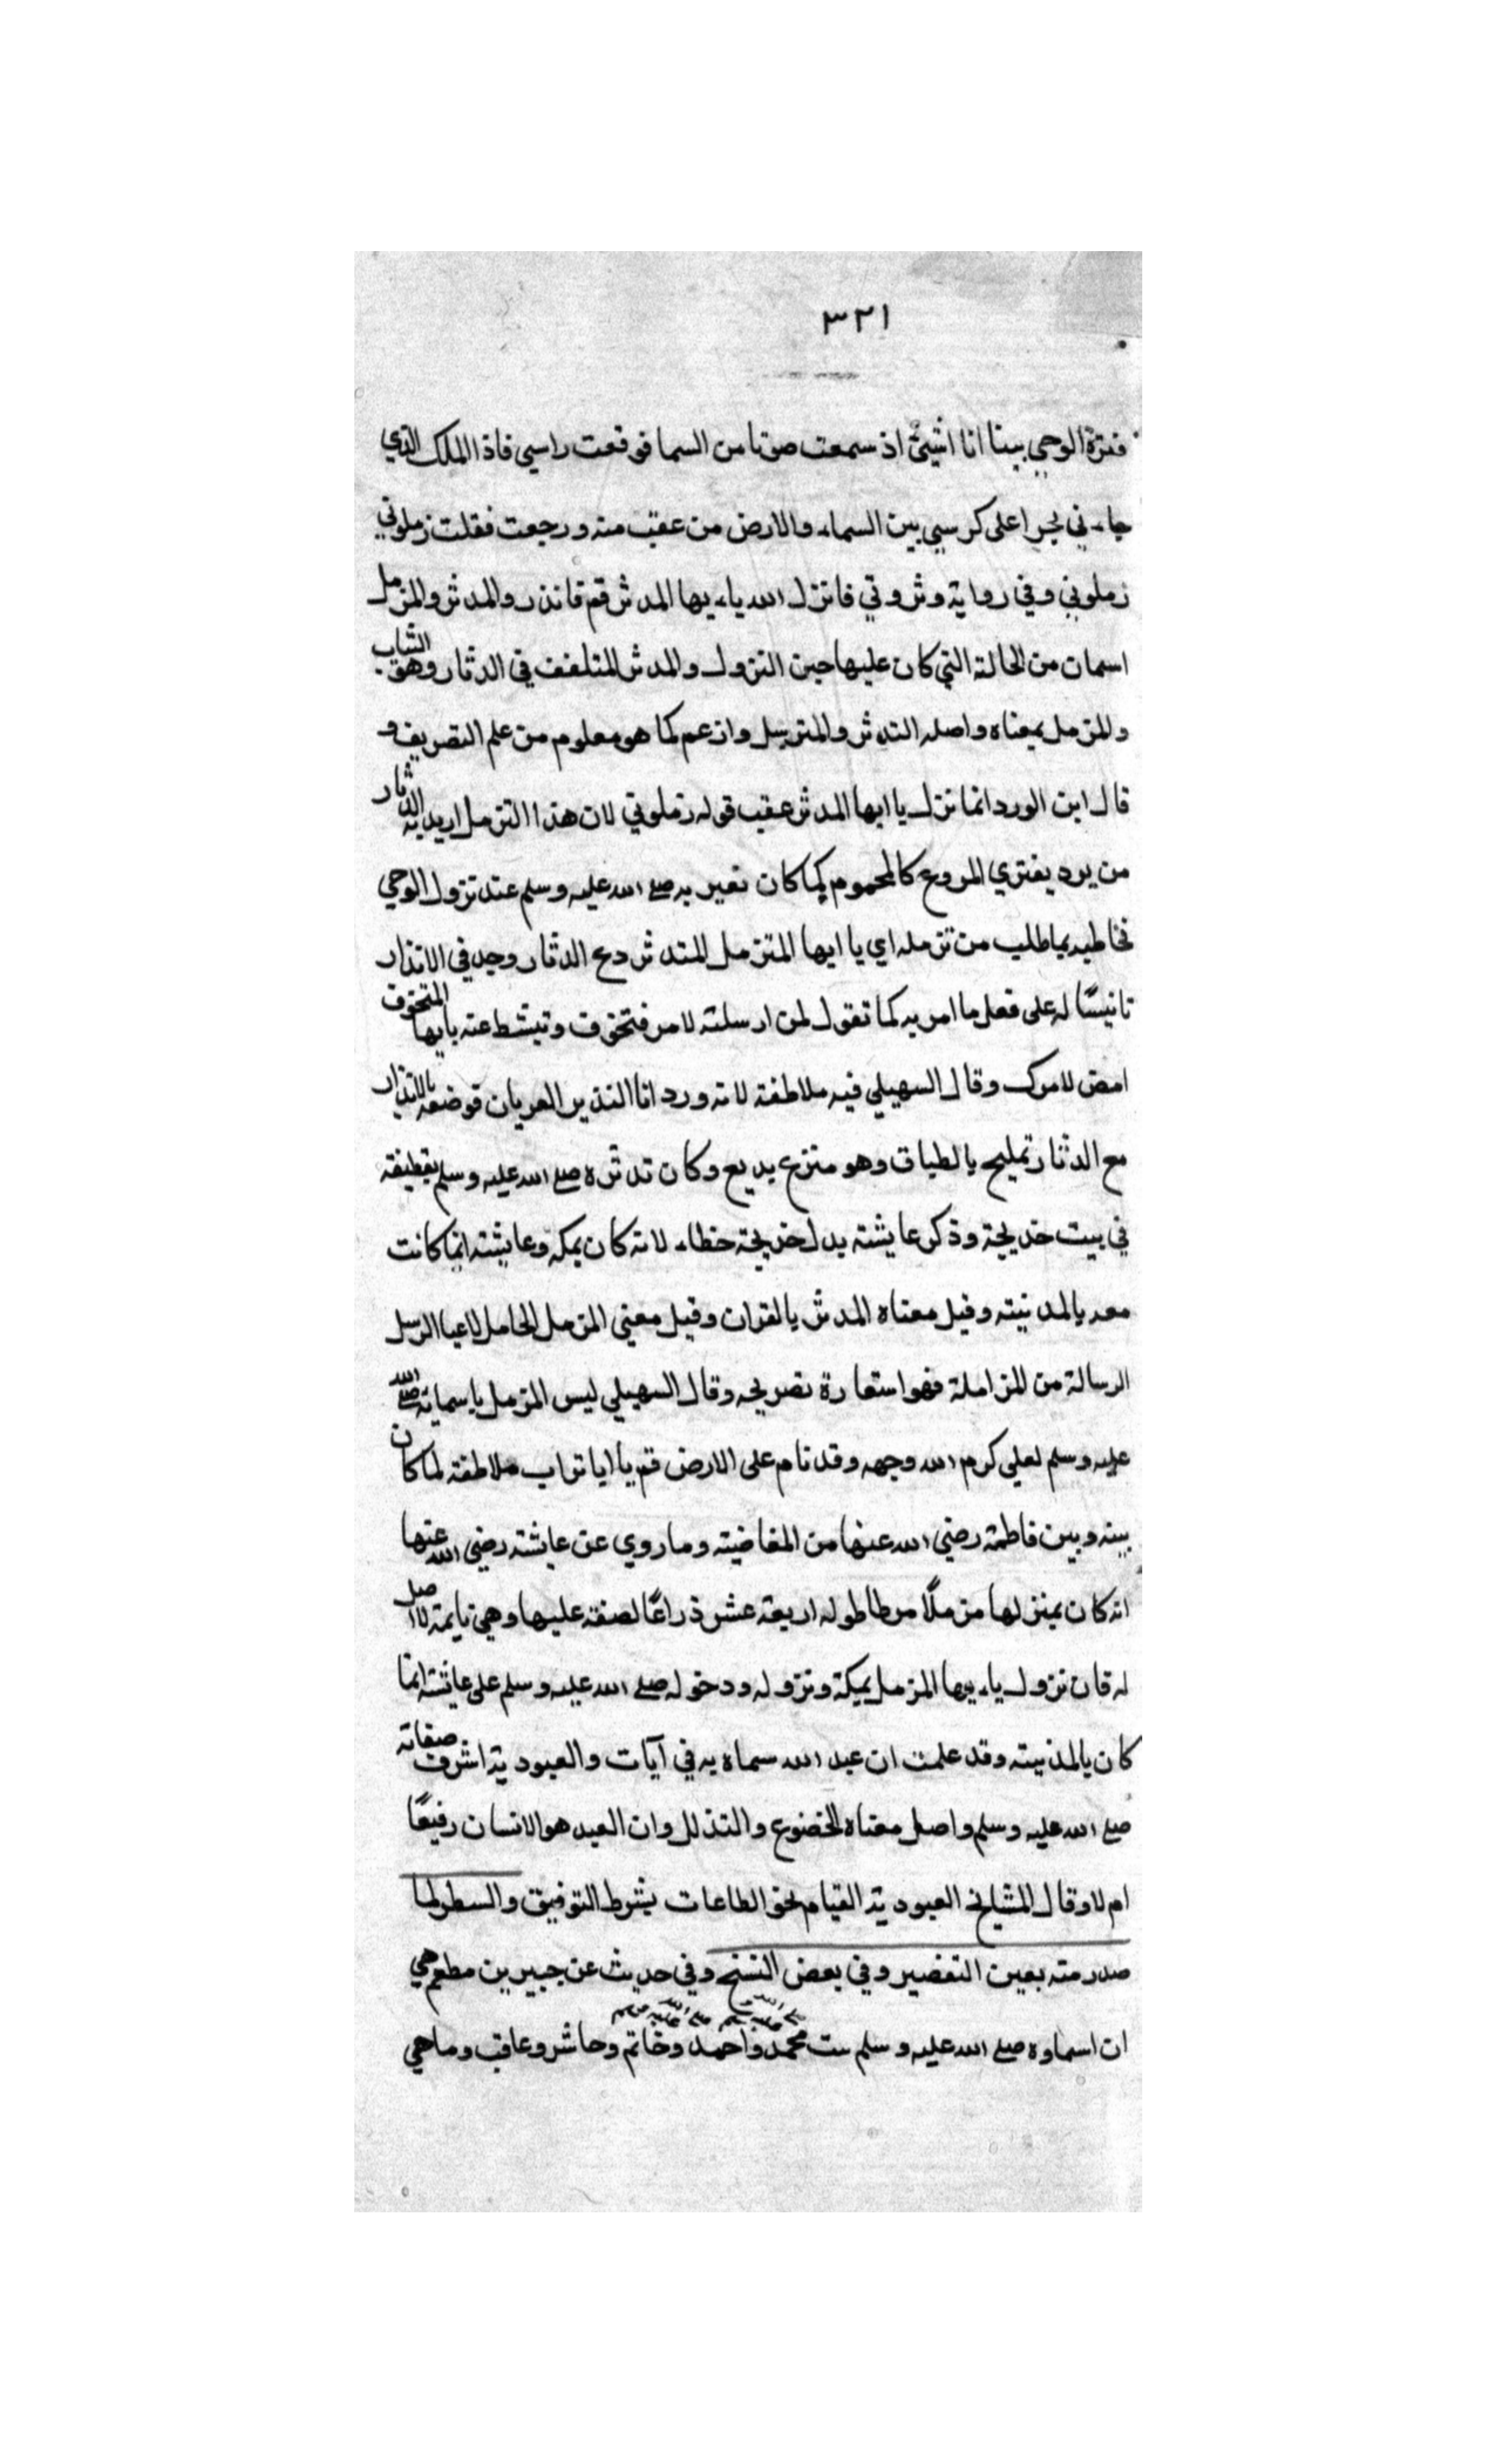 ٣٢١
فترة الوحي بينا انا امشي اذ سمعت صوتا من السما فرفعت راسي فاذا الملك الذي
جاءني بحرا على كرسي بين السماء والارض من عقب منه ورجعت فقلت زملوني
زملوني وفي رواية دثروني فانزل الله ياءيها المدثر قم فانذر والمدثر والمزمل
اسمان من الحالة التي كان عليها حين النزول والمدثر المتلفف في الدثار وهو الثياب
والمزمل بمعناه واصله المتدثر والمتزمل وادغم كما هو معلوم من علم التصريف و
قال ابن الورد انما نزل يا ايها المدثر عقب قوله زملوني لان هذا التزمل اريد به الدثار
من برد يعتري المروع كالمحموم كما كان تعير به صلى الله عليه وسلم عند نزول الوحي
فخاطبه بما طلب من تزمله اي يا ايها المتزمل المتدثر دع الدثار وجد في الانذار
تانيسًا له على فعل ما امر به كما تقول لمن ارسلته لامر فتخوف وتبشط عنه يايها المتخوف
امض لامرك وقال السهيلي فيه ملاطفة لانه ورد انا النذير العريان فوضعه بالانذار
مع الدثار تمليح بالطباق وهو منزع بديع وكان تدثره صلى الله عليه وسلم بقطيفة
في بيت خديجة وذكر عايشة بدل خديجة خطاء لانه كان بمكة وعايشة انما كانت
معه بالمدينة وقيل معناه المدثر بالقران وقيل معنى المزمل الحامل لاعبا الرسل
الرسالة من المزاملة فهو استعارة تصريحه وقال السهيلي ليس المزمل باسمايه صلى الله
عليه وسلم لعلي كرم الله وجهه وقد نام على الارض قم يا ابا تراب ملاطفة لما كان
بينه وبين فاطمة رضي الله عنها من المغاضبة وما روي عن عايشة رضي الله عنها
انه كان بمنزلها مزملًا مرطا طوله اربعة عشر ذراعًا لصفة عليها وهي نايمة لا اصل
له فان نزول ياءيها المزمل بمكة ونزوله ودخوله صلى الله عليه وسلم على عايشة انما
كان بالمدينة وقد علمت ان عبد الله سماه به في آيات والعبودية اشرف صفاته
صلى الله عليه وسلم واصل معناه الخضوع والتذلل وان العبد هو الانسان رفيعًا
ام لا وقال المشايخ العبودية القيام بحق الطاعات بشرط التوفيق والسطر لما
صدر منه بعين التقصير وفي بعض النسخ وفي حديث عن جبير بن مطعم هي
ان اسماوه صلى الله عليه وسلم ست محمد واحمد وخاتم وحاشر وعاقب وماحي